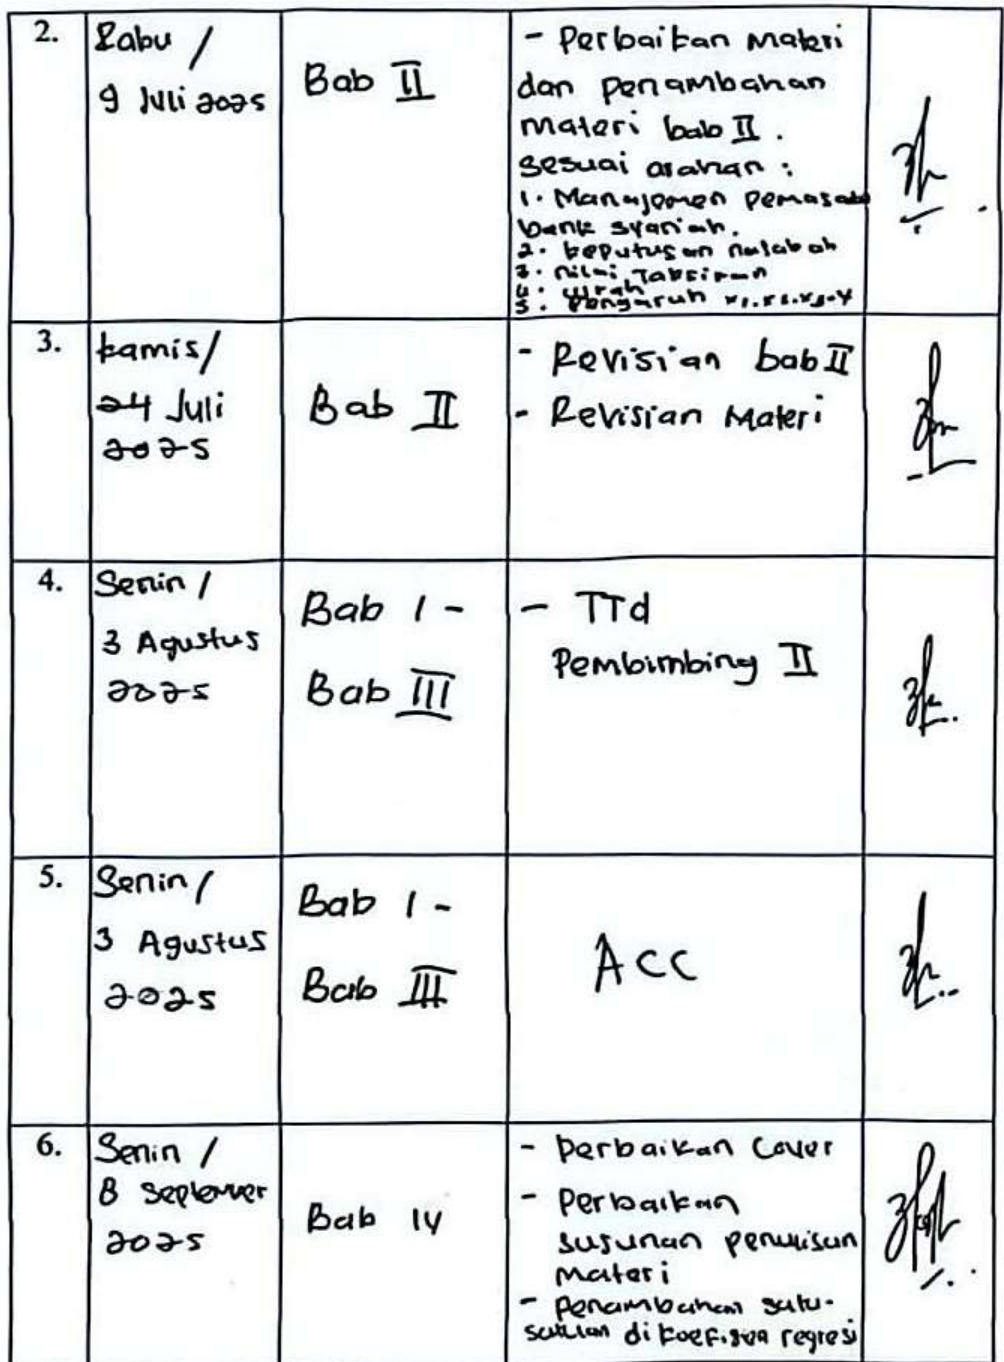 2.
Rabu /
9 Juli 2025
Bab II
- Perbaikan Materi
dan penambahan
materi bab II.
sesuai arahan :
1. Manajemen pemasa
bank syariah.
2. keputusan nasabah
3. nilai Taksiran
4. Ujrah
5. Pengaruh x1.x2.x3-Y
3.
kamis/
24 Juli
2025
Bab II
- Revisian bab II
- Revisian Materi
4.
Senin /
3 Agustus
2025
Bab I -
Bab III
- TTd
Pembimbing II
5.
Senin /
3 Agustus
2025
Bab I -
Bab III
ACC
6.
Senin /
8 September
2025
Bab IV
- Perbaikan Cover
- Perbaikan
susunan penulisan
materi
- Penambahan satu-
satuan di koefisien regresi